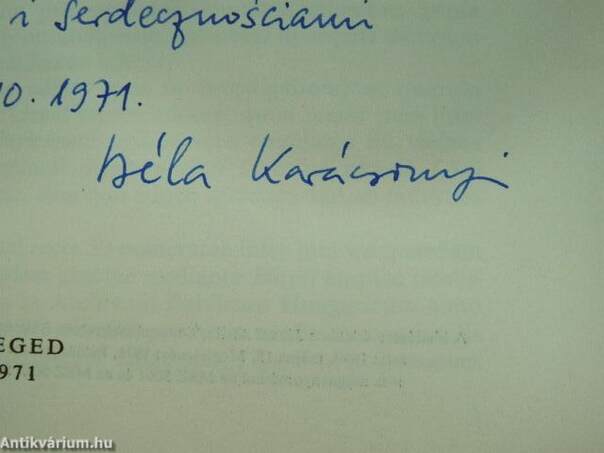 i Serdecznościami
10. 1971.
Béla Karácsonyi
EGED
1971
Antikvárium.hu